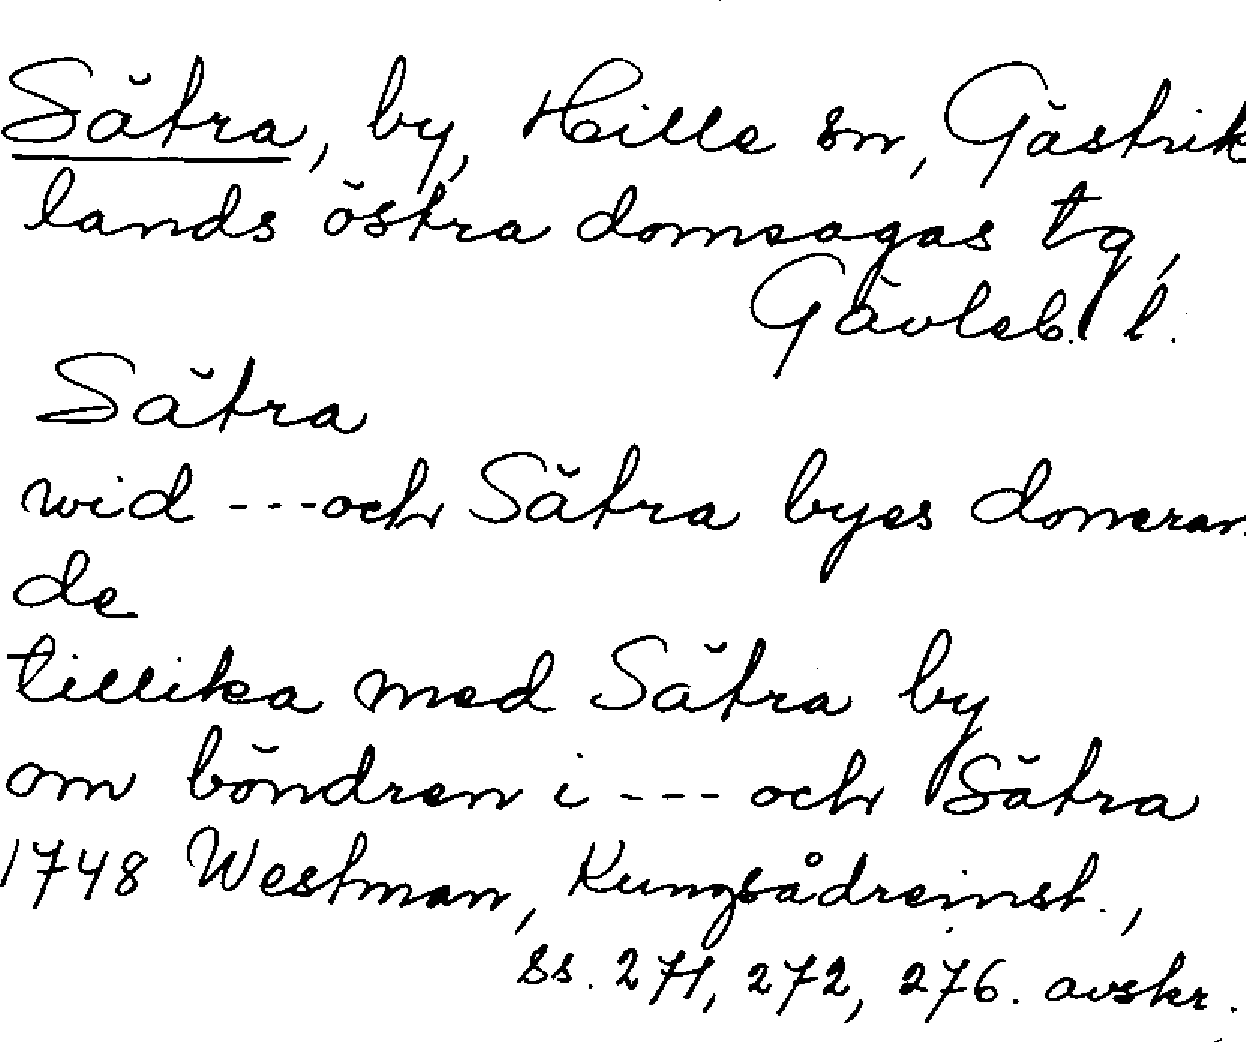 Sätra, by, Hille sn, Gästrik
lands östra domsagas tg,
Gävleb. l.
Sätra
wid --- och Sätra byes domeran
de
tillika med Sätra by
om böndren i --- och Sätra
1748 Westman, Kungsådreinst.,
ss. 271, 272, 276. avskr.